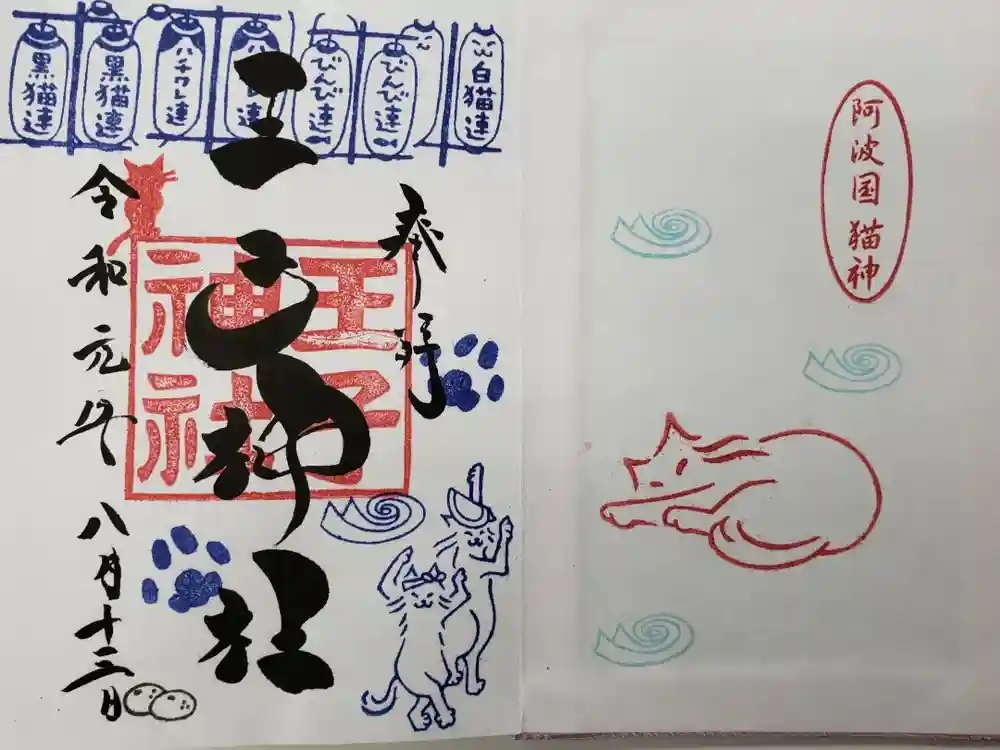 黒猫連
黒猫連
ハチワレ連
びんび連
びんび連
白猫連
奉拝
王子神社
王子神社
令和元年八月十三日
阿波国 猫神